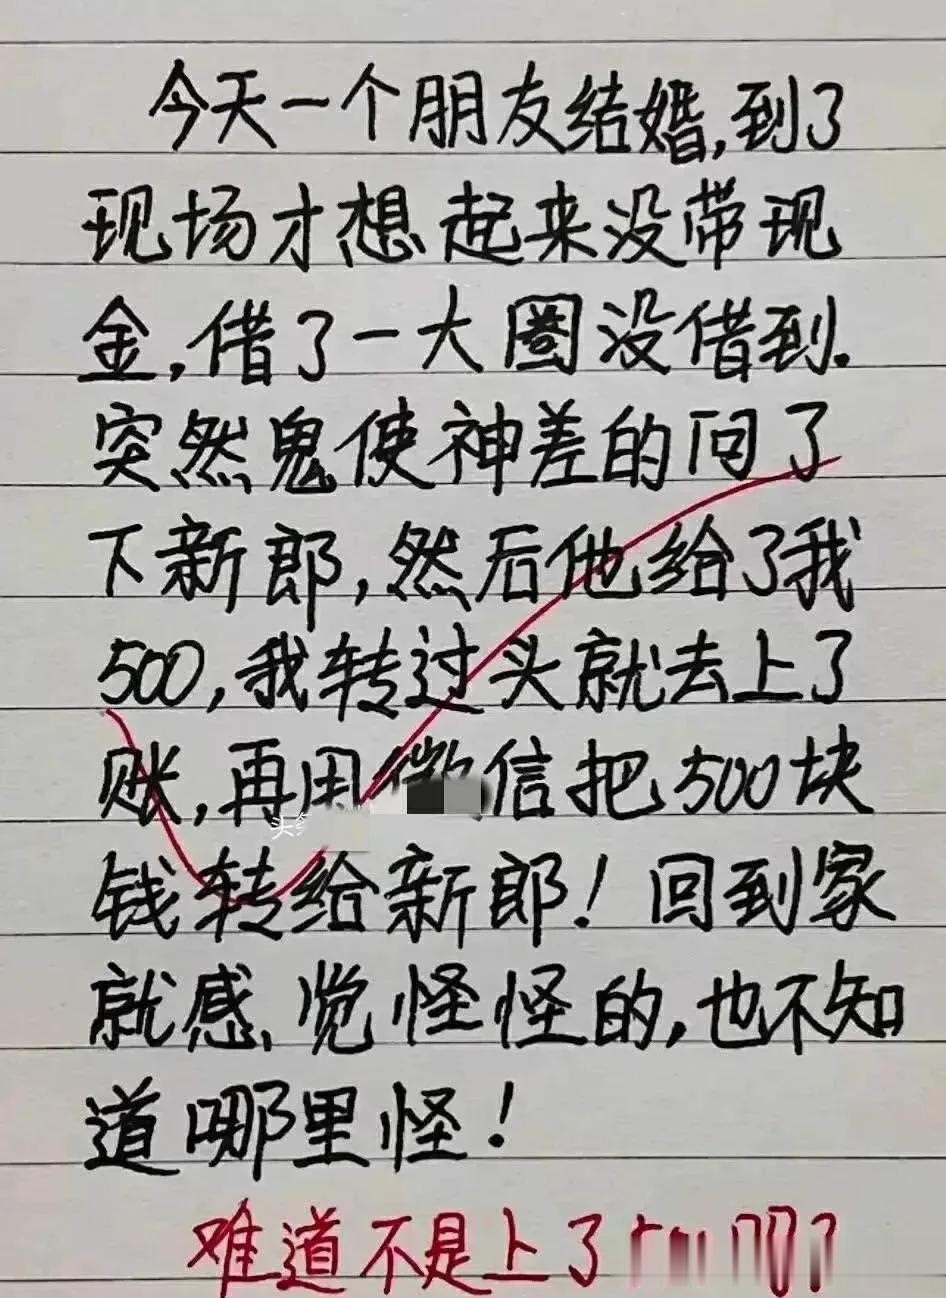 今天一个朋友结婚,到了
现场才想起来没带现
金,借了一大圈没借到.
突然鬼使神差的问了
下新郎,然后他给了我
500,我转过头就去上了
账,再用微信把500块
钱转给新郎!回到家
就感觉怪怪的,也不知
道哪里怪!
难道不是上了